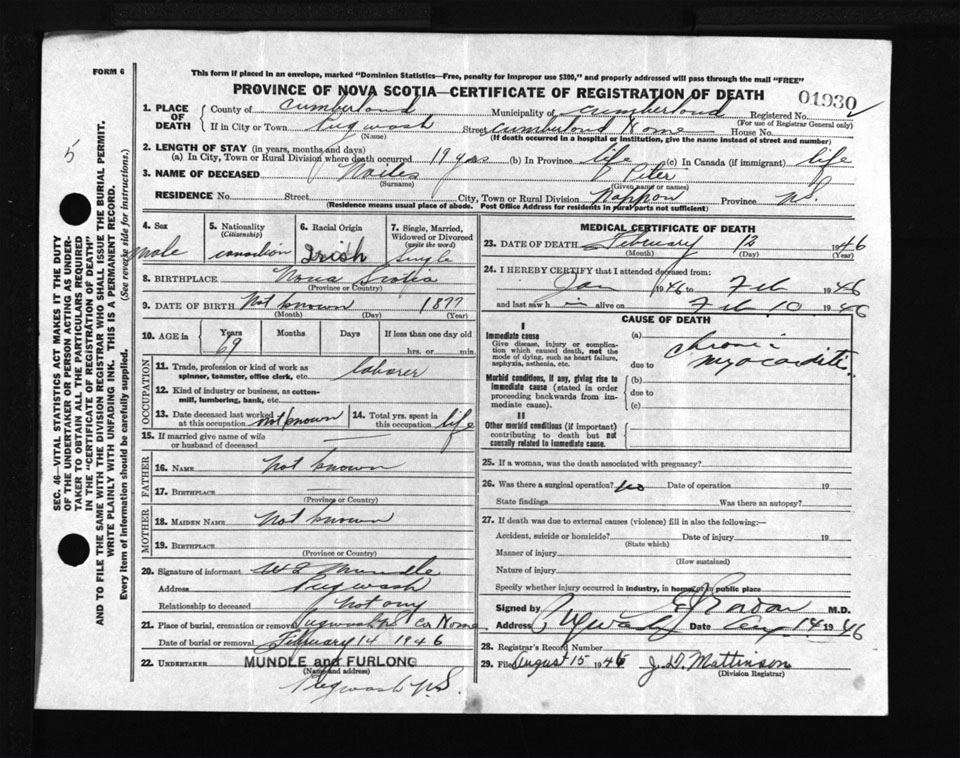 FORM 6
This form if placed in an envelope, marked "Dominion Statistics—Free, penalty for improper use $300," and properly addressed will pass through the mail "FREE"
PROVINCE OF NOVA SCOTIA—CERTIFICATE OF REGISTRATION OF DEATH
01930
1. PLACE OF DEATH County of Cumberland Municipality of Cumberland Registered No.
(For use of Registrar General only)
If in City or Town Pugwash Street Cumberland Home House No.
(Name) (If death occurred in a hospital or institution, give the name instead of street and number)
2. LENGTH OF STAY (in years, months and days)
(a) In City, Town or Rural Division where death occurred 19 yrs (b) In Province life (c) In Canada (if immigrant) life
3. NAME OF DECEASED Noiles Peter
(Surname) (Given name or names)
RESIDENCE No. Street City, Town or Rural Division Nappan Province N.S.
(Residence means usual place of abode. Post Office Address for residents in rural parts not sufficient)
4. Sex male
5. Nationality (Citizenship) Canadian
6. Racial Origin Irish
7. Single, Married, Widowed or Divorced (write the word) Single
8. BIRTHPLACE Nova Scotia
(Province or Country)
9. DATE OF BIRTH Not known 1877
(Month) (Day) (Year)
10. AGE in Years 69 Months Days If less than one day old
hrs. or min.
OCCUPATION
11. Trade, profession or kind of work as spinner, teamster, office clerk, etc. laborer
12. Kind of industry or business, as cotton-mill, lumbering, bank, etc.
13. Date deceased last worked at this occupation not known
14. Total yrs. spent in this occupation life
15. If married give name of wife or husband of deceased —
FATHER
16. NAME not known
17. BIRTHPLACE —
(Province or Country)
MOTHER
18. MAIDEN NAME not known
19. BIRTHPLACE
(Province or Country)
20. Signature of informant Mundle
Address Pugwash
Relationship to deceased not any
21. Place of burial, cremation or removal Pugwash Co Home
Date of burial or removal February 14 1946
22. UNDERTAKER MUNDLE and FURLONG
(Name and address)
Pugwash N.S.
MEDICAL CERTIFICATE OF DEATH
23. DATE OF DEATH February 12 1946
(Month) (Day) (Year)
24. I HEREBY CERTIFY that I attended deceased from:
Jan 1946 to Feb 1946
and last saw him alive on Feb 10 1946
CAUSE OF DEATH
I
Immediate cause
Give disease, injury or complication which caused death, not the mode of dying, such as heart failure, asphyxia, asthenia, etc.
(a) Chronic
due to myocarditis
Morbid conditions, if any, giving rise to immediate cause (stated in order proceeding backwards from immediate cause).
(b)
due to
(c)
II
Other morbid conditions (if important) contributing to death but not causally related to immediate cause.
25. If a woman, was the death associated with pregnancy?
26. Was there a surgical operation? No Date of operation 19
State findings Was there an autopsy?
27. If death was due to external causes (violence) fill in also the following:—
Accident, suicide or homicide? Date of injury 19
(State which)
Manner of injury
(How sustained)
Nature of injury
Specify whether injury occurred in industry, in home or in public place
Signed by M.D.
Address Pugwash Date Aug 14 1946
28. Registrar's Record Number
29. Filed August 15 1946 J. D. Mattinson
(Division Registrar)
5
SEC. 46—VITAL STATISTICS ACT MAKES IT THE DUTY
OF THE UNDERTAKER OR PERSON ACTING AS UNDER-
TAKER TO OBTAIN ALL THE PARTICULARS REQUIRED
IN THE "CERTIFICATE OF REGISTRATION OF DEATH"
AND TO FILE THE SAME WITH THE DIVISION REGISTRAR WHO SHALL ISSUE THE BURIAL PERMIT.
WRITE PLAINLY WITH UNFADING INK. THIS IS A PERMANENT RECORD.
Every item of information should be carefully supplied. (See reverse side for instructions.)